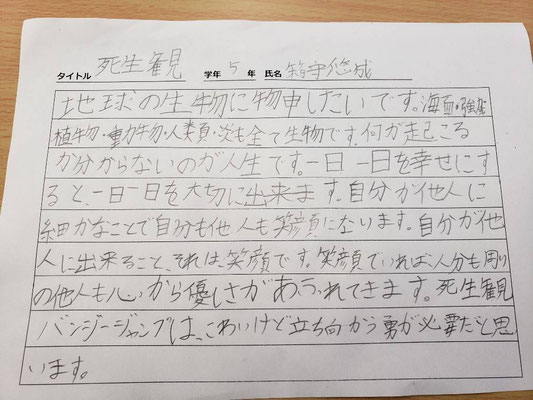 タイトル 死生観 学年 5 年 氏名
地球の生物に物申したいです。海面・強
植物・重力・動物・人類・炎も全て生物です。何が起こる
か分からないのが人生です。一日一日を幸せにす
ると、一日一日を大切に出来ます。自分が他人に
細かなことで自分も他人も笑顔になります。自分が他
人に出来ること、それは、笑顔です。笑顔でいれば、人分も周り
の他人も心から優しさがあふれてきます。死生観
バンジージャンプは、こわいけど立ち向かう勇が必要だと思
います。